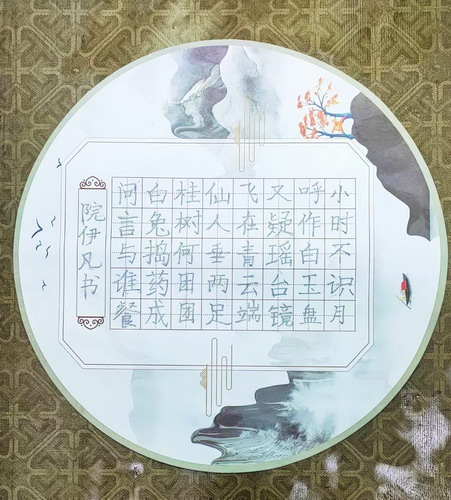 小时不识月
呼作白玉盘
又疑瑶台镜
飞在青云端
仙人垂两足
桂树何困团
白兔捣药成
问言与谁餐
院伊凡书